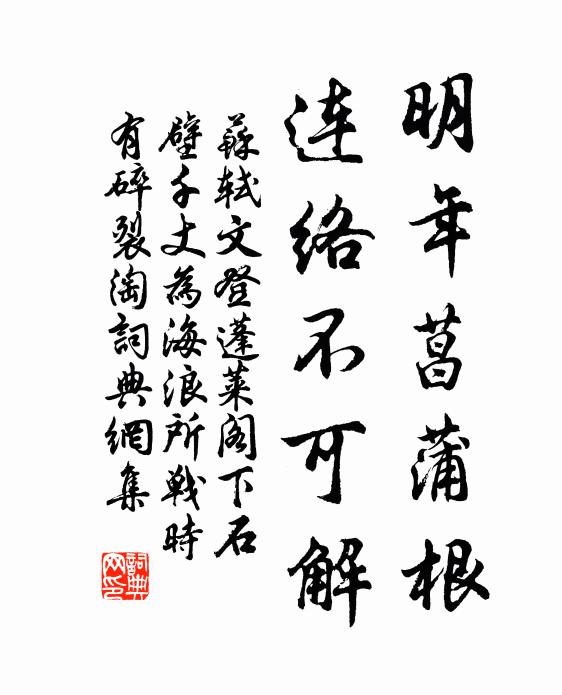 明年菖蒲根
連絡不可解
蘇軾文登蓬萊阁下石
壁千丈為海浪所戰時
有碎裂淘詞典網集
詞典
网印